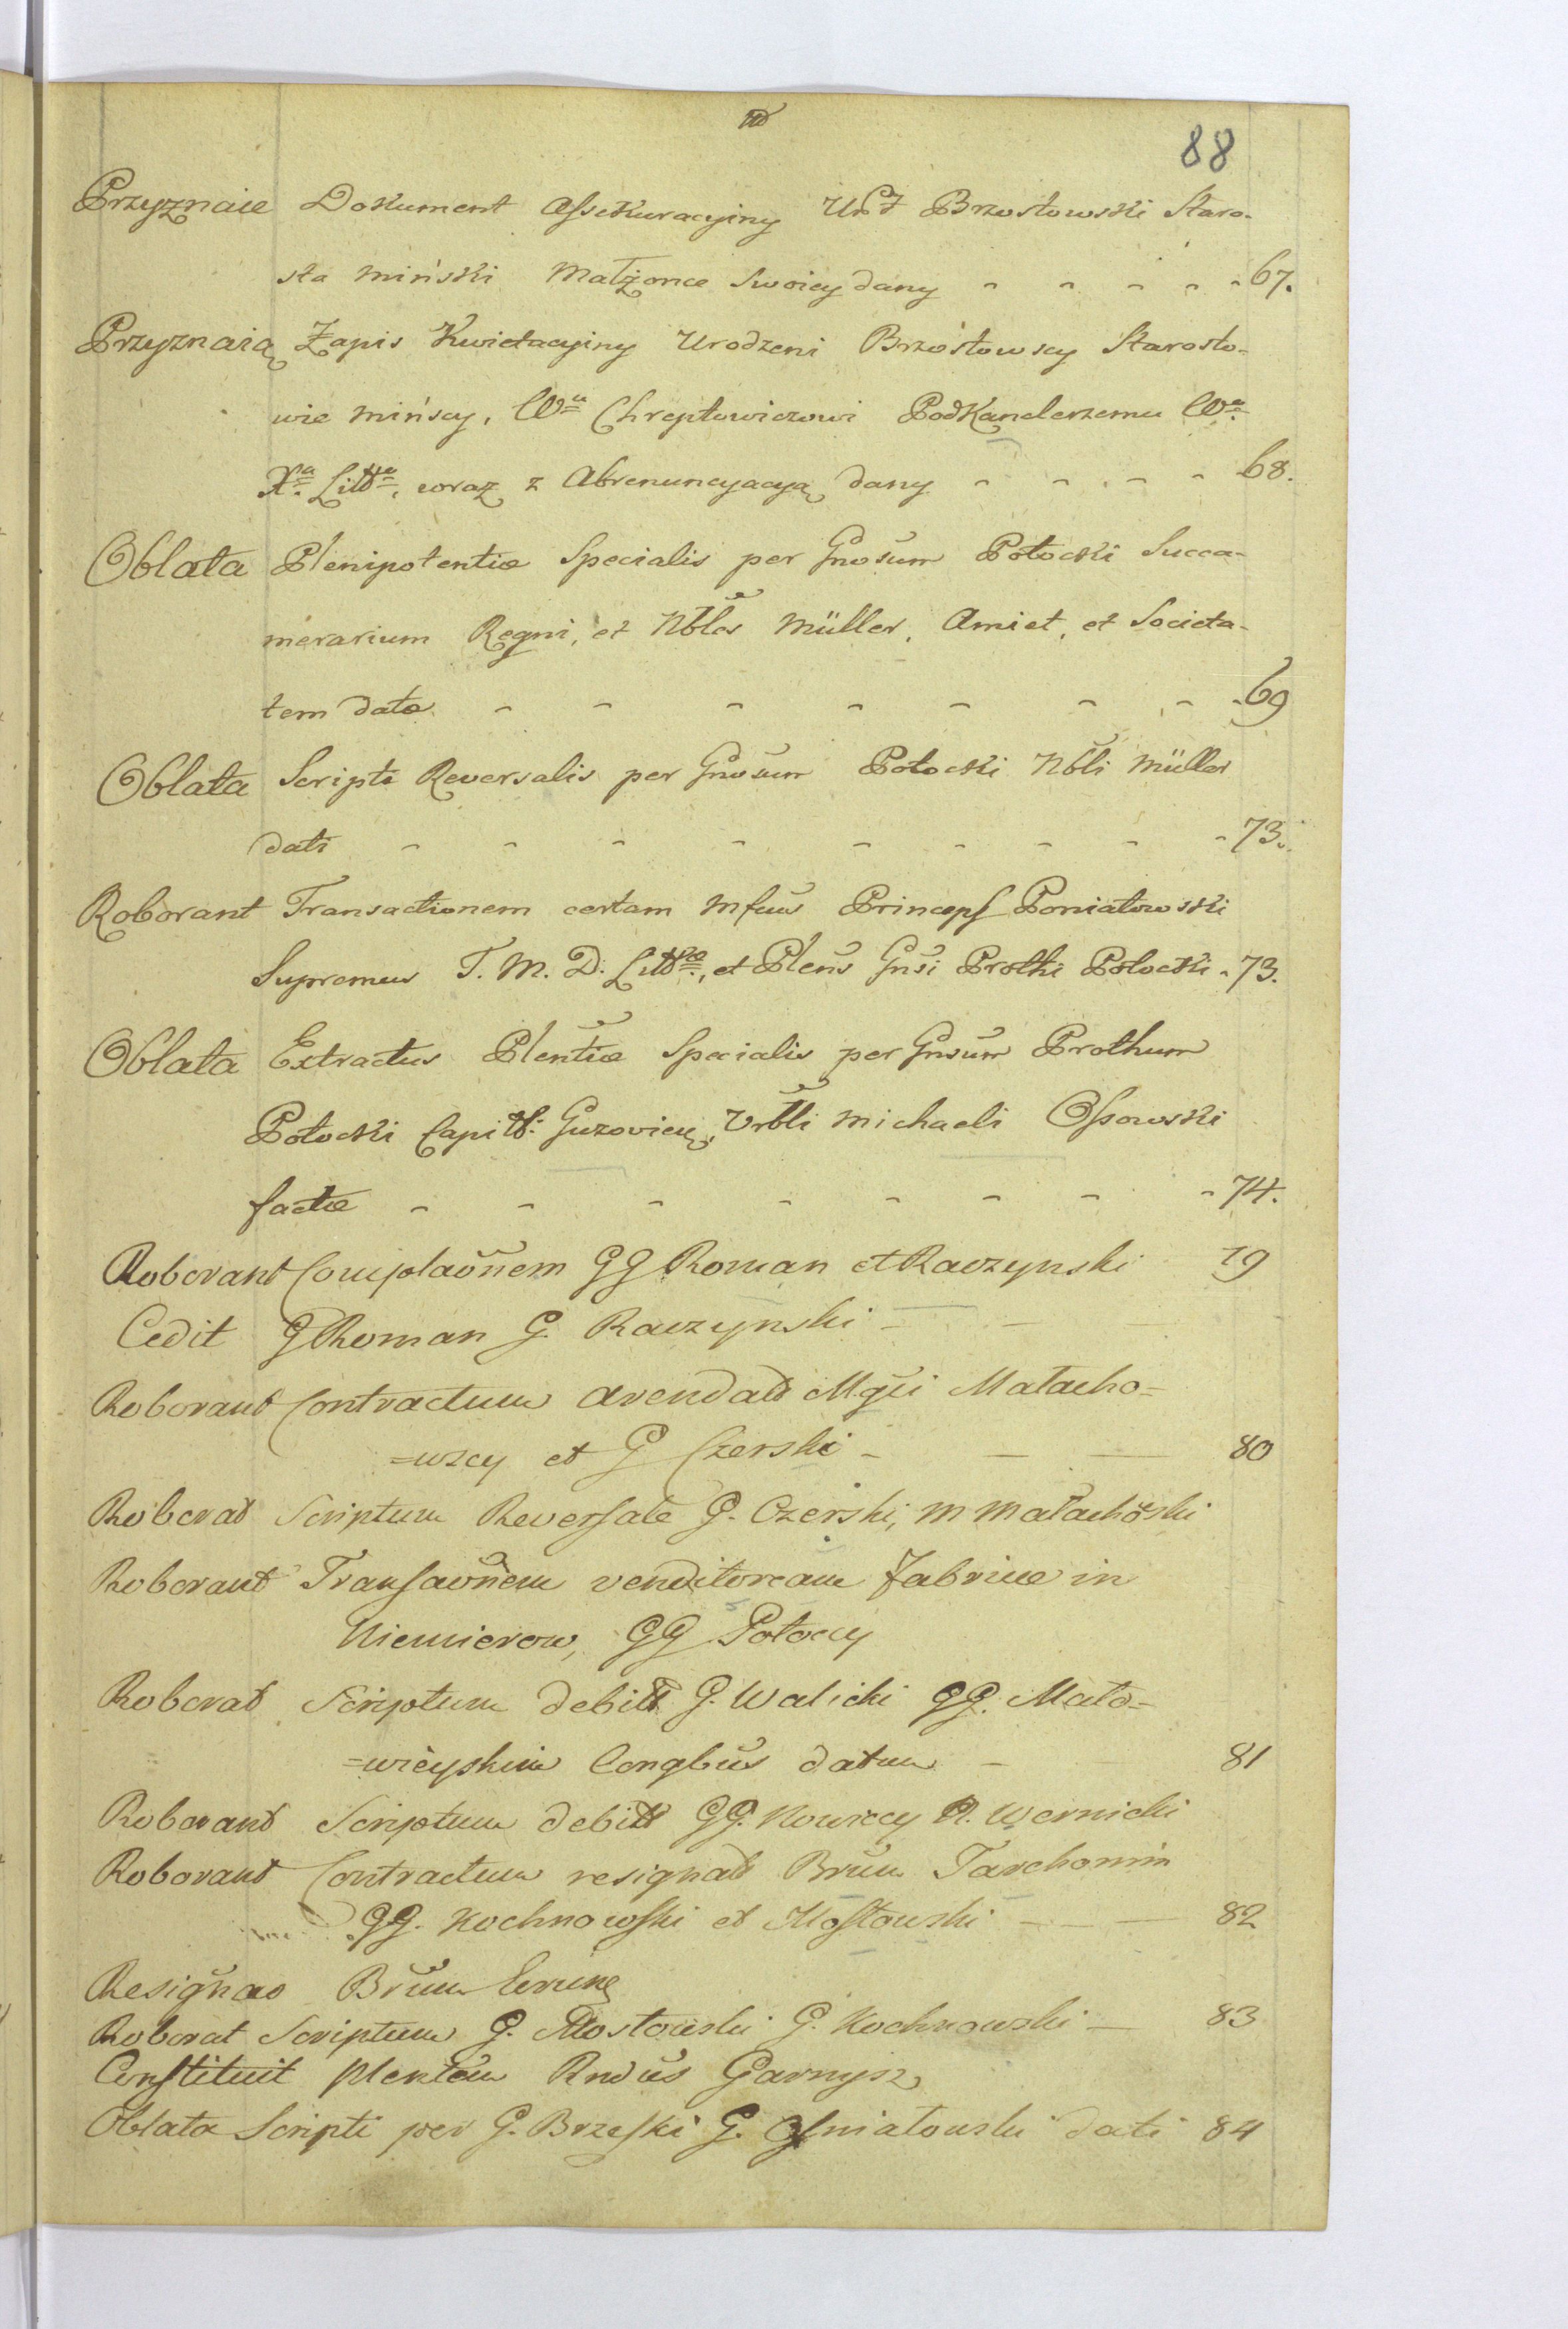 88
Przyznaie Dokument Assekuracyiny Urd Brzostowski Staro-
sta Miński Małżonce Swoiey dany - - - - - 67.
Przyznaią Zapis Kwietacyiny Urodzeni Brzostowscy Starosto-
wie Mińscy, Wu Chreptowiczowi PodKanclerzemu Wo
Xa Littgo, wraz z Abrenuncyacyą dany - - - - 68.
Oblata Plenipotentiæ Specialis per Gnosum Potocki Succa-
merarium Regni, et Nbles Müller, Amiet, et Societa-
tem datæ - - - - - - - - 69
Oblata Scripti Reversalis per Gnosum Potocki Nbli Müller
dati - - - - - - - - - 73.
Roborant Transactionem certam Mfcus Princeps Poniatowski
Supremus T. M. D. Litt, et Plens Gnsi Prothi Potocki - 73.
Oblata Extractus Plentiæ Specialis per Gnsum Prothum
Potocki Capit: Guzovien, Urbli Michaeli Ossowski
factæ - - - - - - - - 74.
Roborant Complaonem GG Roman et Raczynski 79
Cedit G Roman G. Raczynski -
Roborant Contractum arendat Mgci Małacho=
=wscy et G Czerski - 80
Roborat Scriptum Reversale G. Czerski, M Małachoski
Roborant Transaonem venditoream Fabricæ in
Niemierow, GG Potoccy
Roborat Scriptum debiti G. Walicki GG. Mato=
=wieyskim Congbus datum - 81
Roborant Scriptum debiti GG. Nowiccy R. Wernicki
Roborant Contractum resignat Brum Tarchomin
GG. Kochnowski et Mostowski - 82
Resignao Brum
Roborat Scriptum G. Mostowski G. Kochnowski - 83
Constituit plentem Rndus Garnysz
Oblata Scripti per G. Brzeski G. Osniałowski dati 84